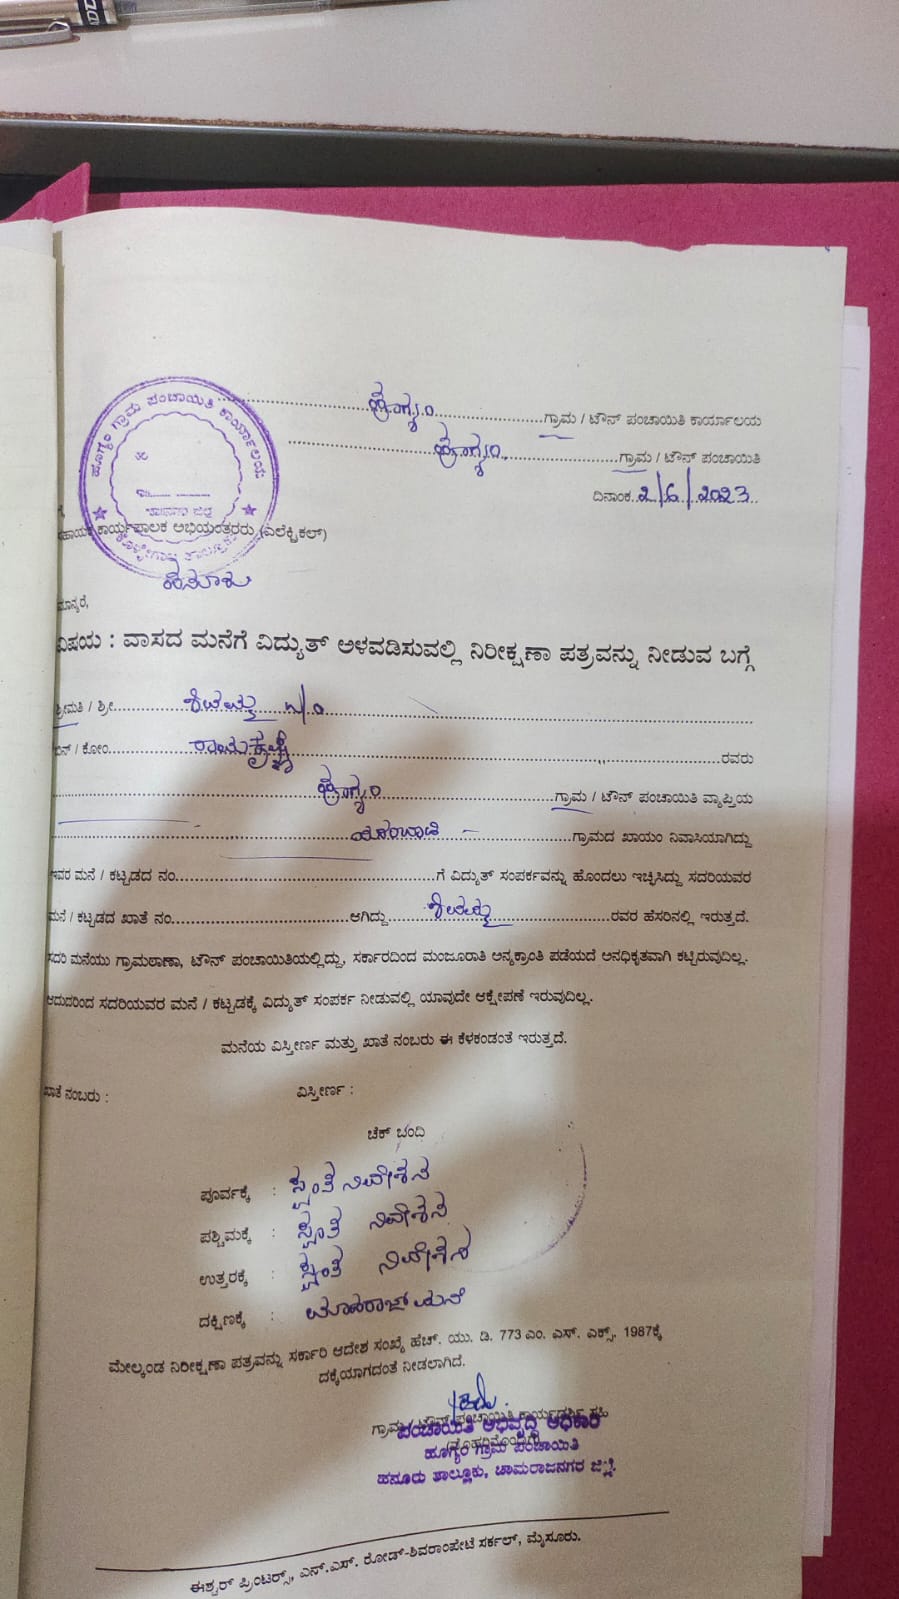 ಹೂಗ್ಯಂ ಗ್ರಾಮ ಪಂಚಾಯಿತಿ ಕಾರ್ಯಾಲಯ
ಹೂಗ್ಯಂ ಗ್ರಾಮ / ಟೌನ್ ಪಂಚಾಯಿತಿ ಕಾರ್ಯಾಲಯ
ಹೂಗ್ಯಂ ಗ್ರಾಮ / ಟೌನ್ ಪಂಚಾಯಿತಿ
ದಿನಾಂಕ 2/6/2023
ಕಾರ್ಯಪಾಲಕ ಅಭಿಯಂತರರು (ಎಲೆಕ್ಟ್ರಿಕಲ್)
ಹನೂರು
ಮಾನ್ಯರೆ,
ವಿಷಯ : ವಾಸದ ಮನೆಗೆ ವಿದ್ಯುತ್ ಅಳವಡಿಸುವಲ್ಲಿ ನಿರೀಕ್ಷಣಾ ಪತ್ರವನ್ನು ನೀಡುವ ಬಗ್ಗೆ
ಶ್ರೀಮತಿ / ಶ್ರೀ ಶಿವಮ್ಮ w/o
ಬಿನ್ / ಕೋಂ ರಾಮಕೃಷ್ಣ ರವರು
ಹೂಗ್ಯಂ ಗ್ರಾಮ / ಟೌನ್ ಪಂಚಾಯಿತಿ ವ್ಯಾಪ್ತಿಯ
ಗ್ರಾಮದ ಖಾಯಂ ನಿವಾಸಿಯಾಗಿದ್ದು
ಇವರ ಮನೆ / ಕಟ್ಟಡದ ನಂ. ಗೆ ವಿದ್ಯುತ್ ಸಂಪರ್ಕವನ್ನು ಹೊಂದಲು ಇಚ್ಛಿಸಿದ್ದು ಸದರಿಯವರ
ಮನೆ / ಕಟ್ಟಡದ ಖಾತೆ ನಂ. ಆಗಿದ್ದು ಶಿವಮ್ಮ ರವರ ಹೆಸರಿನಲ್ಲಿ ಇರುತ್ತದೆ.
ಸದರಿ ಮನೆಯು ಗ್ರಾಮಠಾಣಾ, ಟೌನ್ ಪಂಚಾಯಿತಿಯಲ್ಲಿದ್ದು, ಸರ್ಕಾರದಿಂದ ಮಂಜೂರಾತಿ ಅನ್ಯಕ್ರಾಂತಿ ಪಡೆಯದೆ ಅನಧಿಕೃತವಾಗಿ ಕಟ್ಟಿರುವುದಿಲ್ಲ.
ಆದುದರಿಂದ ಸದರಿಯವರ ಮನೆ / ಕಟ್ಟಡಕ್ಕೆ ವಿದ್ಯುತ್ ಸಂಪರ್ಕ ನೀಡುವಲ್ಲಿ ಯಾವುದೇ ಆಕ್ಷೇಪಣೆ ಇರುವುದಿಲ್ಲ.
ಮನೆಯ ವಿಸ್ತೀರ್ಣ ಮತ್ತು ಖಾತೆ ನಂಬರು ಈ ಕೆಳಕಂಡಂತೆ ಇರುತ್ತದೆ.
ಖಾತೆ ನಂಬರು : ವಿಸ್ತೀರ್ಣ :
ಚೆಕ್ ಬಂದಿ
ಪೂರ್ವಕ್ಕೆ : ಸ್ವಂತ ನಿವೇಶನ
ಪಶ್ಚಿಮಕ್ಕೆ : ಸ್ವಂತ ನಿವೇಶನ
ಉತ್ತರಕ್ಕೆ : ಸ್ವಂತ ನಿವೇಶನ
ದಕ್ಷಿಣಕ್ಕೆ : ಮನೆ
ಮೇಲ್ಕಂಡ ನಿರೀಕ್ಷಣಾ ಪತ್ರವನ್ನು ಸರ್ಕಾರಿ ಆದೇಶ ಸಂಖ್ಯೆ ಹೆಚ್. ಯು. ಡಿ. 773 ಎಂ. ಎಸ್. ಎಕ್ಸ್. 1987ಕ್ಕೆ
ದಕ್ಕೆಯಾಗದಂತೆ ನೀಡಲಾಗಿದೆ.
ಗ್ರಾಮ / ಟೌನ್ ಪಂಚಾಯಿತಿ ಕಾರ್ಯದರ್ಶಿ ಸಹಿ
ಪಂಚಾಯಿತಿ ಅಭಿವೃದ್ಧಿ ಅಧಿಕಾರಿ
ಹೂಗ್ಯಂ ಗ್ರಾಮ ಪಂಚಾಯಿತಿ
ಹನೂರು ತಾಲ್ಲೂಕು, ಚಾಮರಾಜನಗರ ಜಿಲ್ಲೆ.
ಈಶ್ವರ್ ಪ್ರಿಂಟರ್ಸ್, ಎನ್.ಎಸ್. ರೋಡ್-ಶಿವರಾಂಪೇಟೆ ಸರ್ಕಲ್, ಮೈಸೂರು.